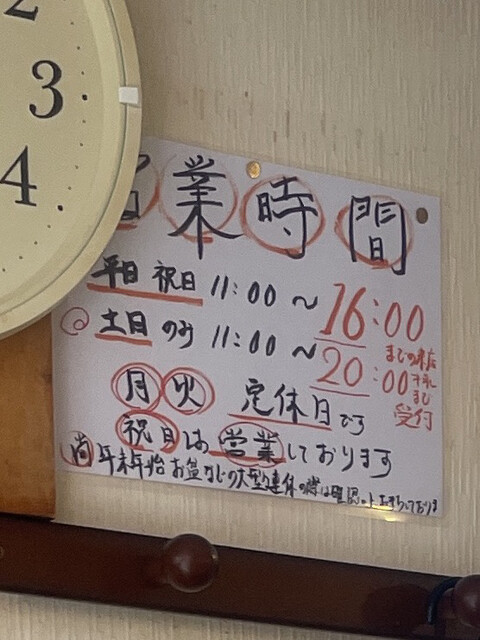 2
3
4
営業時間
平日 祝日 11:00 ~ 16:00
土日 のみ 11:00 ~ 20:00
までの来店
まで
受付
月 火 定休日です
祝日は営業しております
尚 年末年始 お盆などの大型連休の際は確認の上